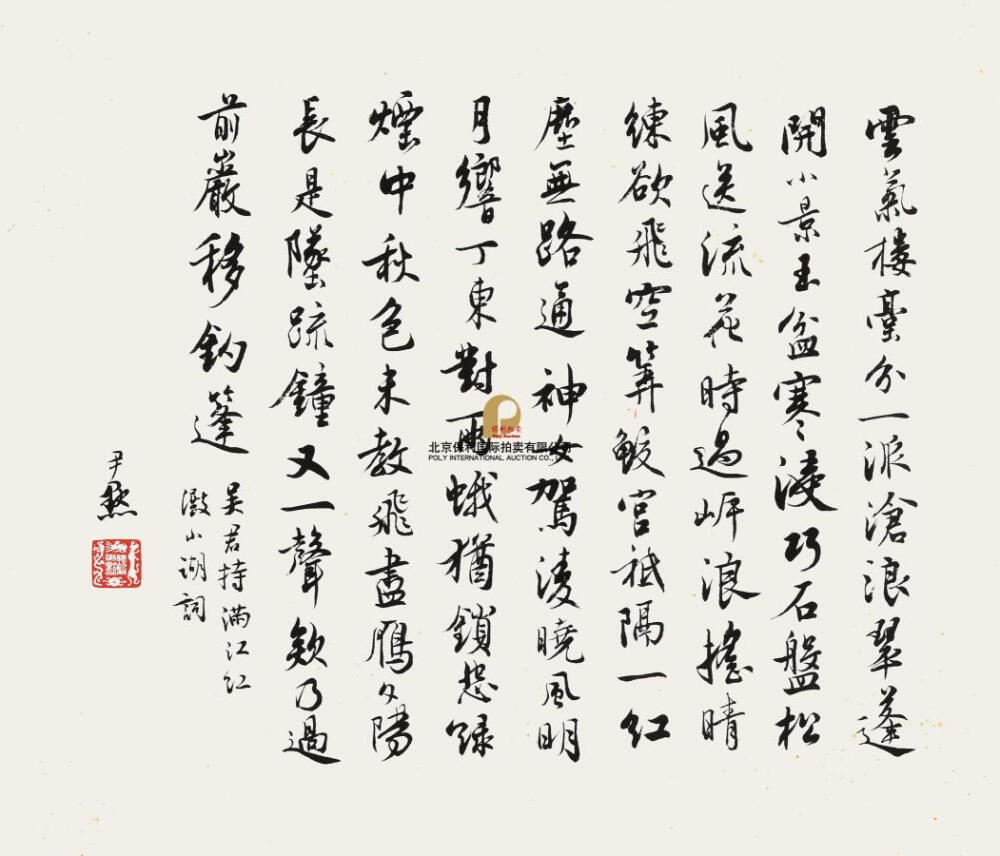 雲氣樓臺分一派滄浪翠蓬
開小景玉盆寒浸巧石盤松
風送流花時過岸浪搖晴
練欲飛空算鮫宮祗隔一紅
塵無路通 神女駕凌曉風明
月響丁東對兩蛾猶鎖怨綠
煙中秋色未教飛盡雁夕陽
長是墜疏鐘又一聲欸乃過
前巖移釣篷
吳君持滿江紅
澱山湖詞
尹默
保利拍卖
Poly Auction
北京保利国际拍卖有限公司
POLY INTERNATIONAL AUCTION CO.,LTD